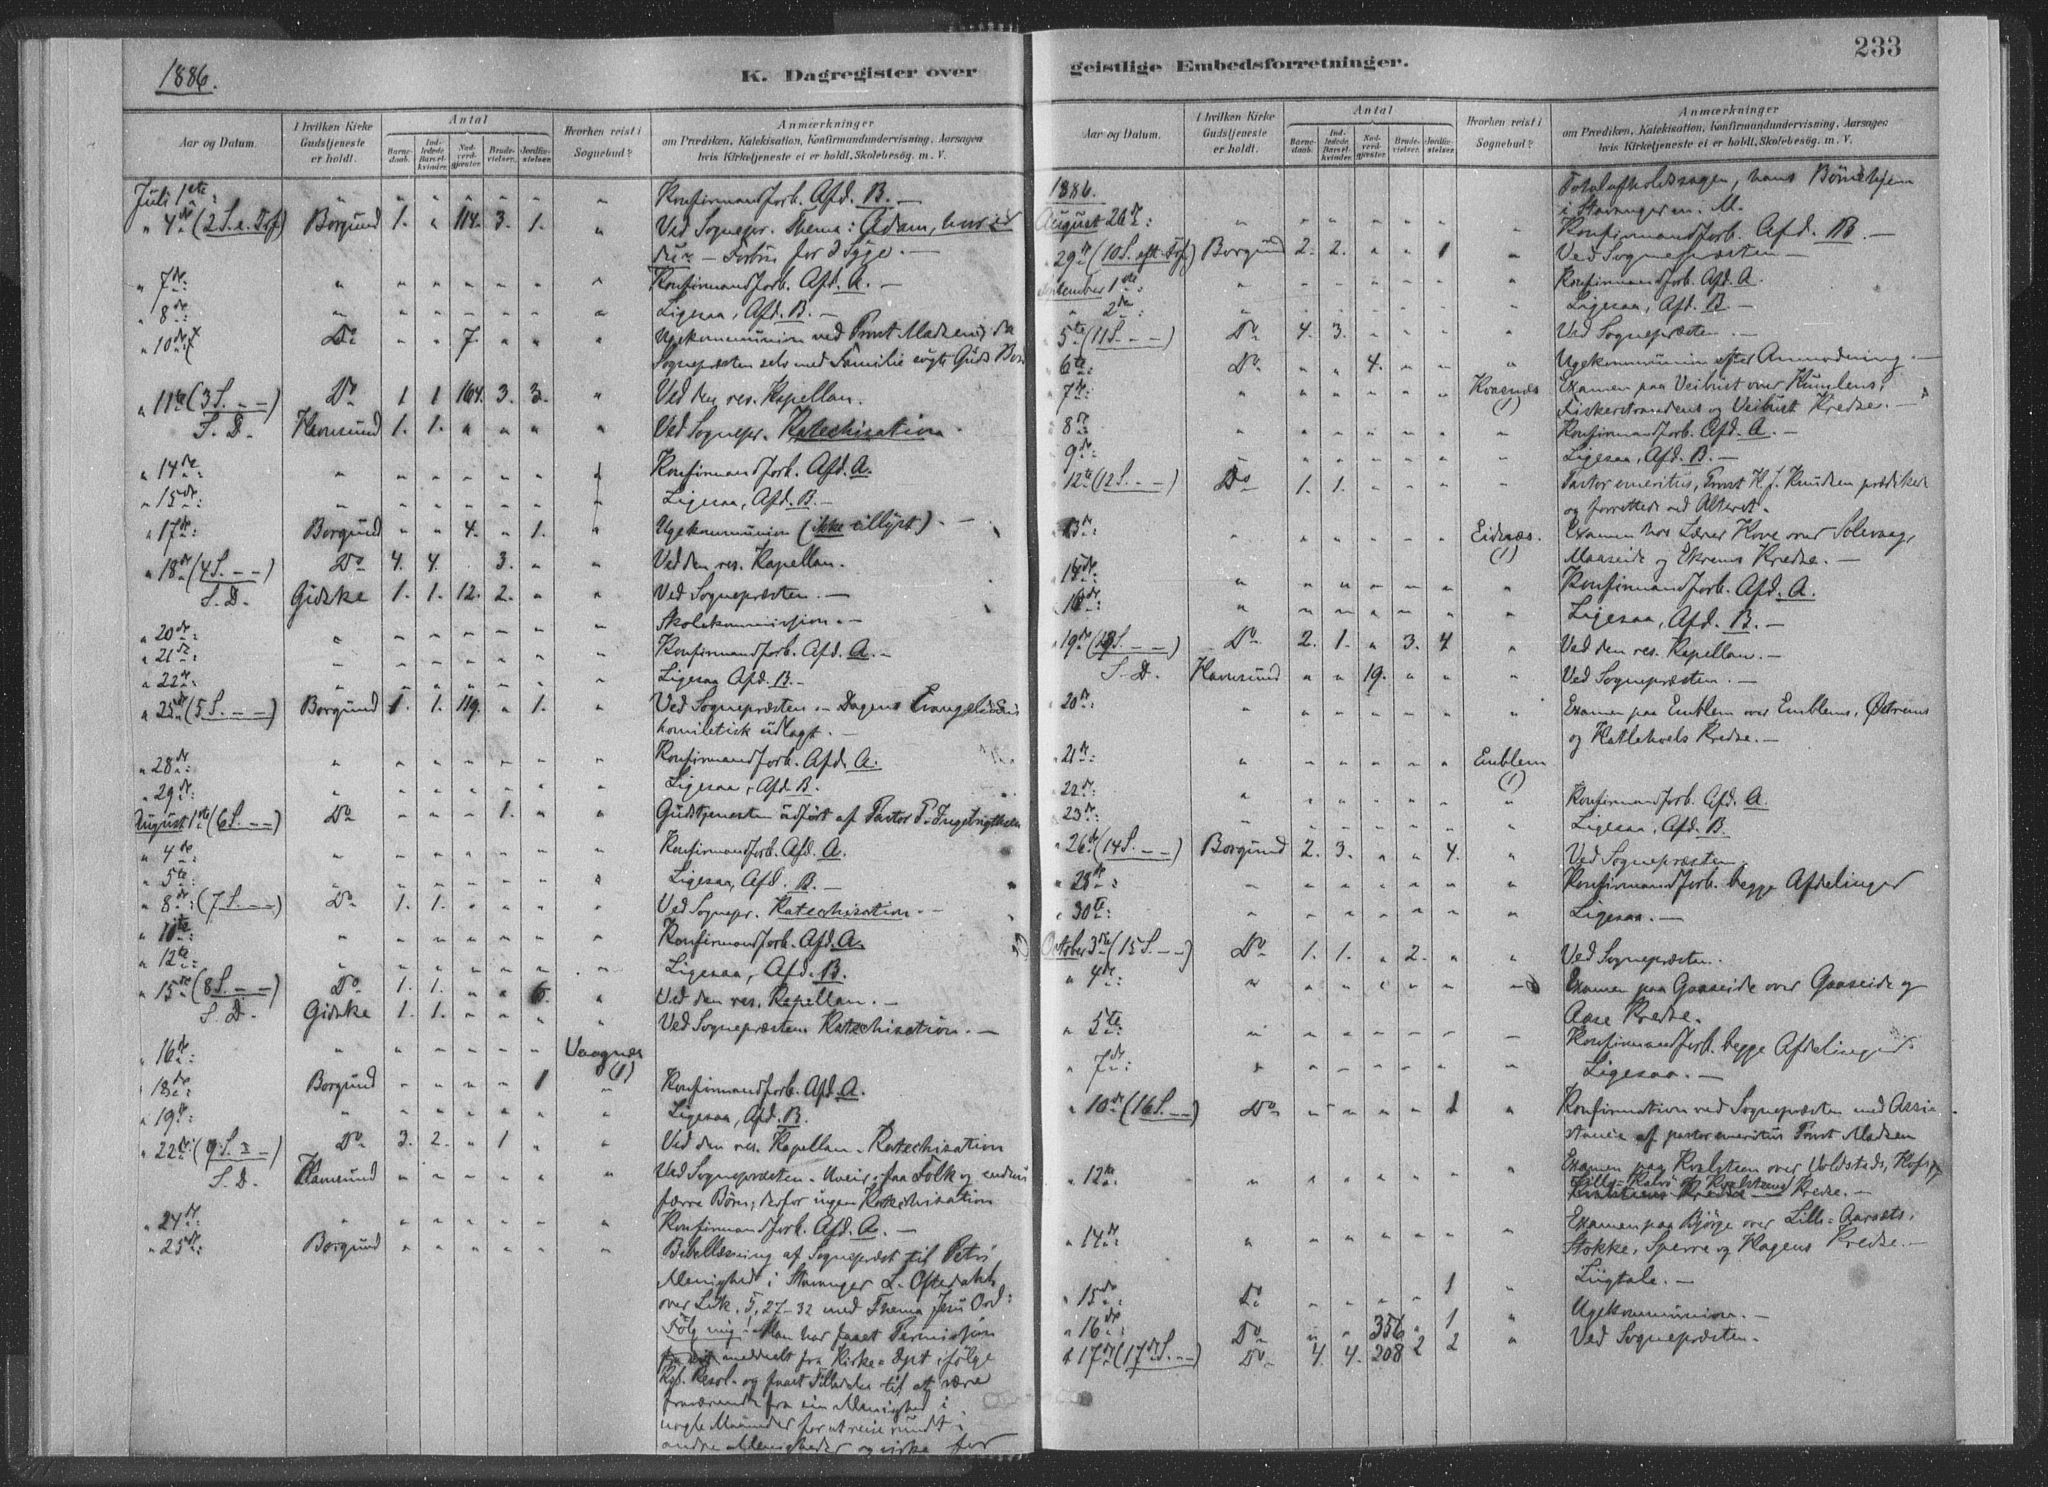 1886.
K. Dagregister over
Aar og Datum.
I hvilken Kirke Gudstjeneste er holdt.
Antal
Barnedaab.
Indledede Barselkvinder.
Nadverdgjester.
Brudevielser.
Jordfæstelser.
Hvorhen reist i Sognebud?
Anmærkninger
om Prædiken, Katekisation, Konfirmandundervisning, Aarsagen
hvis Kirketjeneste ei er holdt, Skolebesøg. m. V.
Juli 1ste: " " " " " " " Konfirmandforb. Afd. B. —
" 4de (2 S. e. Trf.) Borgund 1. " 114. 3. 1. " Ved Sognepr. Thema: Adam, hvor er
Du? — Forbøn for 2 Syge. —
" 7de: " " " " " " " Konfirmandforb. Afd. A. —
" 8de: " " " " " " " Ligesaa, Afd. B. —
" 10de: Do " " 7. " " " Ugekommunion ved Provst Madsen, da
Sognepræsten selv med Familie søgte Guds Bord
" 11te (3 S. — —) Do 1 1 164. 3. 3. " Ved den res. Kapellan.
S. D. Hamsund 1. 1. " " " " Ved Sognepr. Katechisation.
" 14de: " " " " " " " Konfirmandforb. Afd. A.
" 15de: " " " " " " " Ligesaa, Afd. B. —
" 17de: Borgund " " 4. " 1. " Ugekommunion (ikke tillyst). —
" 18de (4 S. — —) Do 4. 4. . 3. " " Ved den res. Kapellan. —
S. D. Gidske 1. 1. 12. 2. " " Ved Sognepræsten. —
" 20de: " " " " " " " Skolekommission. —
" 21de: " " " " " " " Konfirmandforb. Afd. A. —
" 22de: " " " " " " " Ligesaa Afd. B. —
" 25de (5 S. — —) Borgund 1. 1. 119. " 1. " Ved Sognepræsten — Dagens Evangelium
homiletisk udlagt. —
" 28de: " " " " " " " Konfirmandforb. Afd. A.
" 29de: " " " " " " " Ligesaa, Afd. B. —
August 1ste (6 S. — —) Do " " " 1. " " Gudstjenesten udført af Pastor
" 4de: " " " " " " " Konfirmandforb. Afd. A.
" 5te: " " " " " " " Ligesaa, Afd. B. —
" 8de: (7 S. — —) Do 1. 1. " " " " Ved Sognepr. Katechisation. —
" 10te: " " " " " " " Konfirmandforb. Afd. A.
" 12te: " " " " " " " Ligesaa, Afd. B.
" 15de (8 S. — —) Do 1. 1. " " 6. " Ved den res. Kapellan. —
S. D. Gidske 1. 1. " " " " Ved Sognepræsten Katechisation. —
" 16de: " " " " " " Vaagnæs (1)
" 18de: Borgund " " " " 1 " Konfirmandforb. Afd. A.
" 19de: " " " " " " " Ligesaa, Afd. B.
" 22de: (9 S. — —) Do 3. 2. " 1 " " Ved den res. Kapellan. Katechisation
S. D. Hamsund " " " " " " Ved Sognepræsten. Uveir, faa Folk og endnu
færre Børn; derfor ingen Katechisation
" 24de: " " " " " " " Konfirmandforb. Afd. A. —
" 25de: Borgund " " " " " " Bibellæsning af Sognepræst til Petri
Menighed i Stavanger L. Oftedahl
over Luk. 5, 27-32 med Thema Jesu Ord:
Følg mig! Han har faaet Permission
meddelt fra Kirke-Dpt ifølge
Kgl. Resol. og faaet Tilladelse til at være
fraværende fra sin Menighed i
nogle Maaneder for at reise rundt i
andre Menigheder og virke for
233
geistlige Embedsforretninger.
Aar og Datum.
I hvilken Kirke Gudstjeneste er holdt.
Antal
Barnedaab.
Indledede Barselkvinder.
Nadverdgjester.
Brudevielser.
Jordfæstelser.
Hvorhen reist i Sognebud?
Anmærkninger
om Prædiken, Katekisation, Konfirmandundervisning, Aarsagen
hvis Kirketjeneste ei er holdt, Skolebesøg. m. V.
1886.
Totalafholdssagen, hans Børnehjem
i Stavanger m. M.
August 26de: " " " " " " " Konfirmandforb. Afd. B. —
" 29de (10 S. eft. Trf.) Borgund 2. 2. " " 1 " Ved Sognepræsten —
September 1ste: " " " " " " " Konfirmandforb. Afd. A.
" 2den: " " " " " " " Ligesaa, Afd. B. —
" 5te (11 S. — —) Do 4. 3. " " " " Ved Sognepræsten. —
" 6te: Do " " 4. " " " Ugekommunion efter Anmodning. —
" 7de: " " " " " " (1) Examen paa Veibust over Humlens,
Fiskerstrandens og Veibust Kredse. —
" 8de: " " " " " " " Konfirmandforb. Afd. A. —
" 9de: " " " " " " " Ligesaa, Afd. B. —
" 12te (12 S. — —) Do 1. 1. " " " " Pastor emeritus, Provst H. J. Knudsen prædikede
og forrettede ved Alteret.
" 13de: " " " " " " Eidsnæs. (1) Examen hos Lærer Hove over Solevaag,
Maaseide og Ekrems Kredse. —
" 15de: " " " " " " " Konfirmandforb. Afd. A.
" 16de: " " " " " " " Ligesaa, Afd. B. —
" 19de (13 S. — —) Do 2. 1. " 3. 4 " Ved den res. Kapellan. —
S. D. Hamsund " " 19. " " " Ved Sognepræsten. —
" 20de: " " " " " " " Examen paa Emblem over Emblems, Østrems
og Hatlehols Kredse. —
" 21de: " " " " " " Emblem (1)
" 22de: " " " " " " " Konfirmandforb. Afd. A.
" 23de: " " " " " " " Ligesaa, Afd. B.
" 26de (14 S. — —) Borgund 2. 3. " " 4. " Ved Sognepræsten.
" 28de: " " " " " " " Konfirmandforb. begge Afdelinger
" 30te: " " " " " " " Ligesaa. —
October 3die (15 S. — —) Do 1. 1. " 2. " " Ved Sognepræsten.
" 4de: " " " " " " " Examen paa Gaaseide over Gaaseide og
Aase Kredse.
" 5te: " " " " " " " Konfirmandforb. begge Afdelinger.
" 7de: " " " " " " " Ligesaa. —
" 10de (16 S. — —) Do " " " " 1 " Konfirmation ved Sognepræsten med Assi-
stance af pastor emeritus Provst Madsen
" 12te: " " " " " " " Examen paa Kvalsteen over Voldstads, Hofs,
Lille-Kalvø & Kvalsteens Kredse. —
" 14de: " " " " " " " Examen paa Bjørge over Lille-Aarsæts,
Stokke, Sperre og Hagens Kredse. —
" 15de: Do " " " " 1 " Liigtale. —
" 16de: Do " " 356 " 1 " Ugekommunion. —
" 17de (17de S. — —) Do 4. 4. 208 2 2 " Ved Sognepræsten.